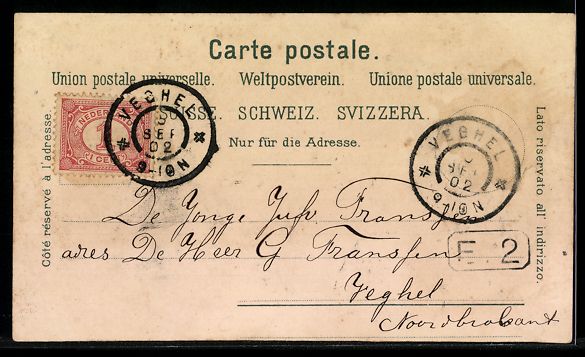 Carte postale.
Union postale universelle. Weltpostverein. Unione postale universale.
SSE. SCHWEIZ. SVIZZERA.
Nur für die Adresse.
Côté réservé à l'adresse.
Lato riservato all' indirizzo.
NEDERL
1
CENT
VEGHEL
SEP
02
9-10N
VEGHEL
SEP
02
9-10N
De Jonge Jufr Fransen
adres De Heer G Franssen
Veghel
Noordbrabant
E 2